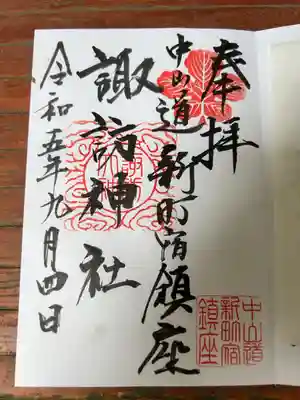 奉拝
中山道新町宿鎮座
諏訪神社
令和五年九月四日
中山道
新町宿
鎮座